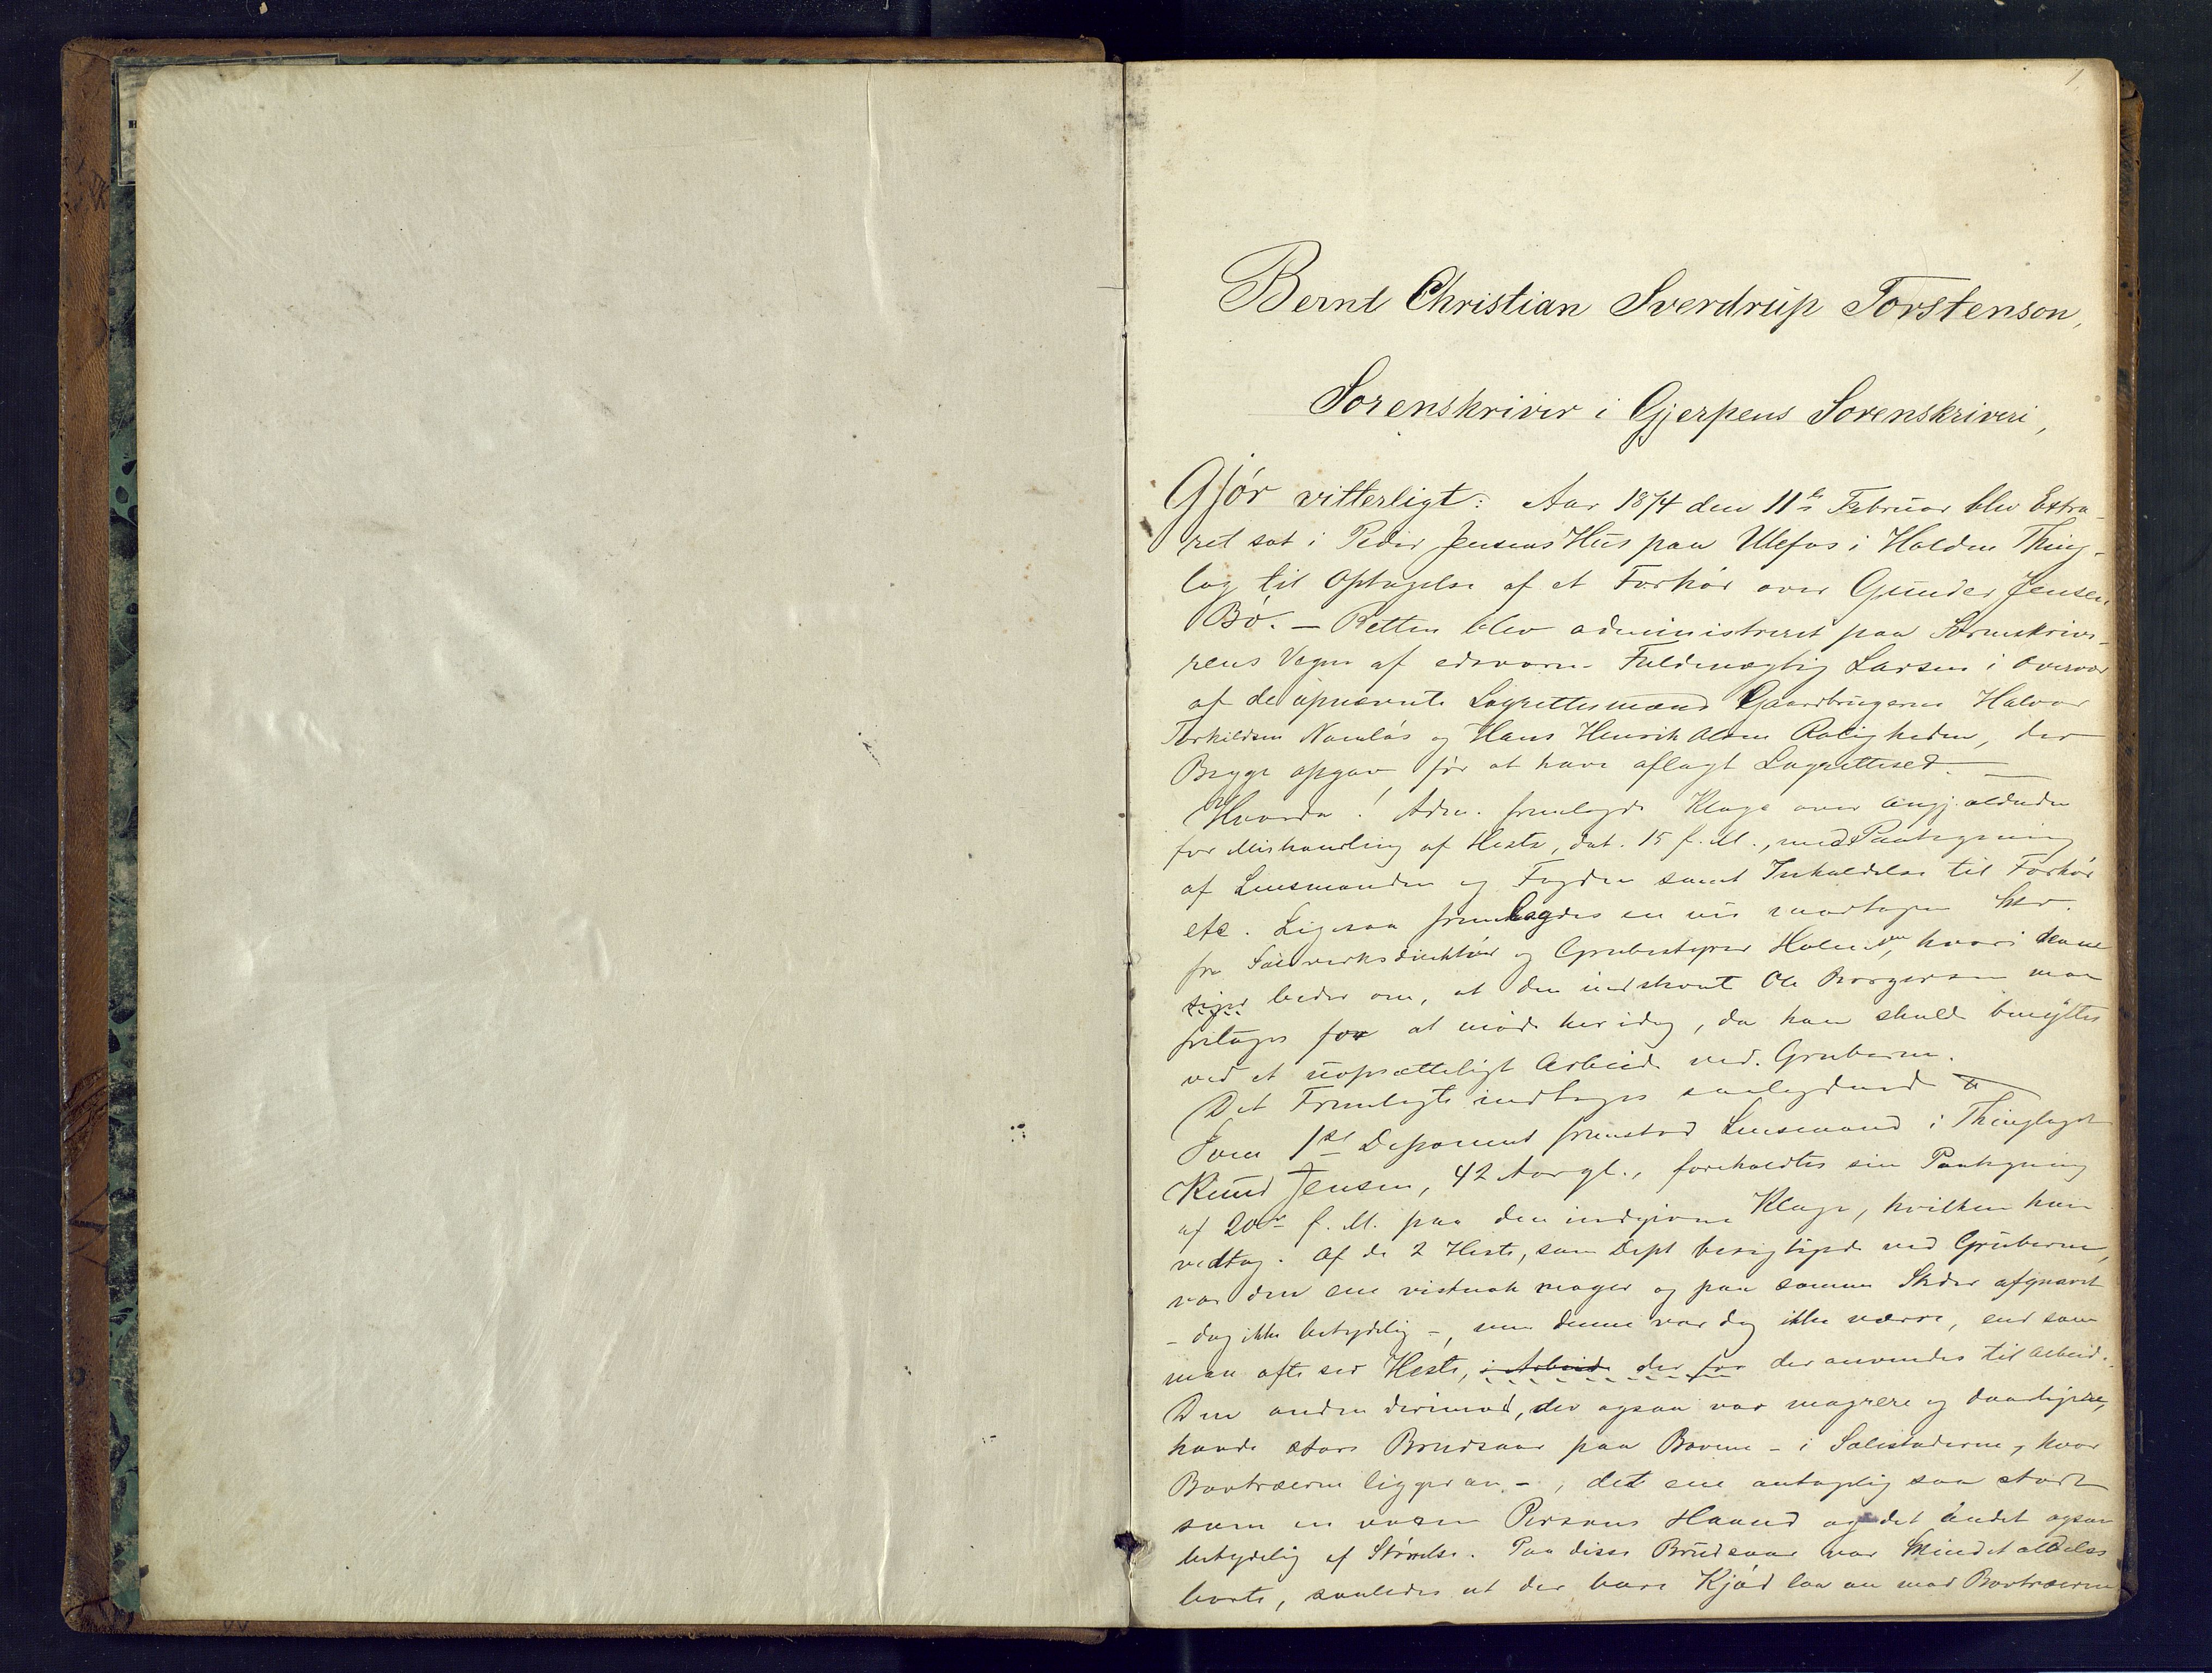 1
Bernt Christian Sverdrup Torstenson,
Sorenskriver i Gjerpens Sorenskriveri,
Gjør vitterligt: Aar 1874 den 11te Februar blev Extra-
ret sat i Peder Jensens Hus paa Ulefos i Holden Thing-
lag til Optagelse af et Forhør over Gunder Jensen
Bö. — Retten blev administreret paa Sorenskrive-
rens Vegne af edsvorne Fuldmægtig Larsen i Overvær
af de opnævnte Lagrettesmænd Gaardbrugerne Halvor
Torkildsen Namløs og Hans Henrik Olsen Roligheden, der
Begge opgav før at have aflagt Lagretteed. —
Hvorda! Adm. fremlagde Klage over Angjældende
for Mishandling af Heste, dat. 15 f. M., med Paategning
af Lensmanden og Fogden samt Indkaldelse til Forhør
etc. Ligesaa fremlagdes en nu modtagen Skr.
fra og Grubestiger Holm, hvori denne
siger beder om, at den indkaldte Ole Borgersen maa
fritages for at møde her idag, da han skulde benyttes
ved et uopsætteligt Arbeide ved Gruberne.
Det Fremlagte indtages saalydende
Som 1ste Deponent fremstod Lensmand i Thinglaget
Knud Jensen, 42 Aar gl., foreholdtes sin Paategning
af 20de f. M. paa den indgivne Klage, hvilken han
vedtog. Af de 2 Heste, som Dept besigtigede ved Gruberne,
var den ene vistnok mager og paa somme Steder afgnavet
- dog ikke betydelig -, men denne var dog ikke værre, end som
man ofte ser Heste, i Arbeide der for der anvendes til Arbeide.
Den anden derimod, der ogsaa var magrere og daarligere,
havde store Brudsaar paa Bovene - i Selestederne, hvor
Bovtræerne ligger an -, det ene antagelig saa stort
som en voxen Persons Haand og det andet ogsaa
betydelig af Størrelse. Paa disse Brudsaar var Skindet aldeles
borte, saaledes at det bare Kjød laa an mod Bovtræerne